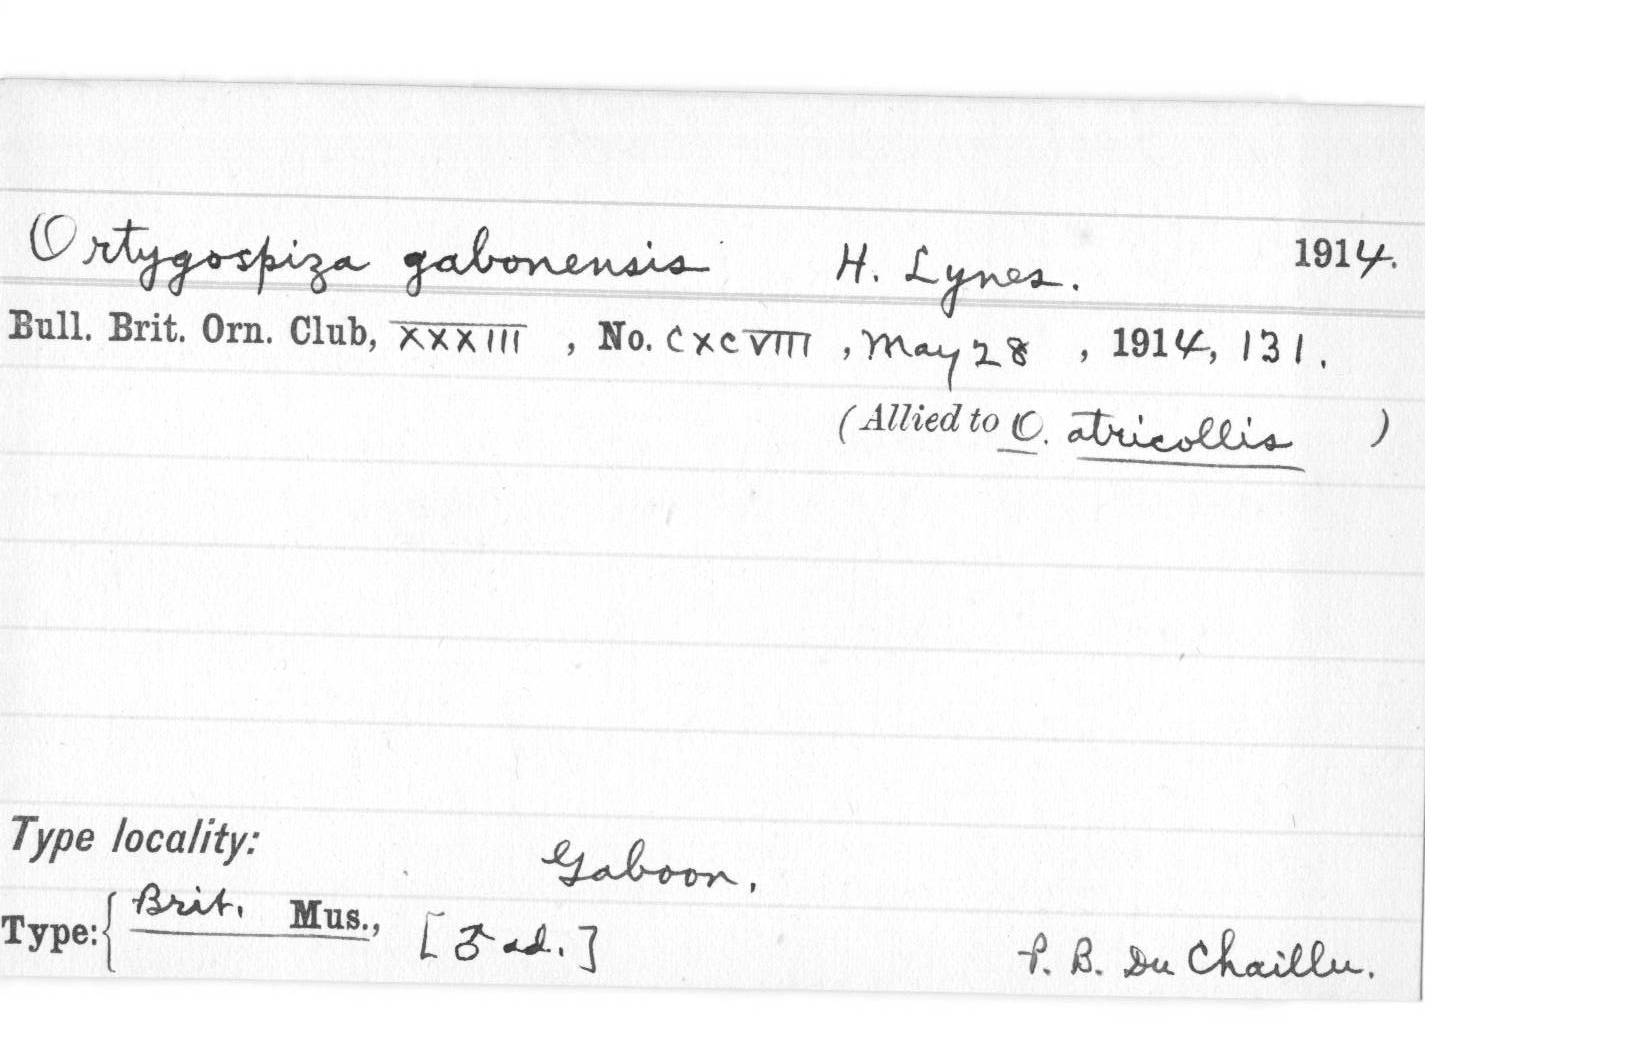 Ortygospiza gabonensis H. Lynes. 1914.
Bull. Brit. Orn. Club, XXXIII, No. CXCVIII, May 28, 1914, 131.
(Allied to O. atricollis)
Type locality: Gaboon.
Type: { Brit. Mus., [♂ ad.] P. B. Du Chaillu.